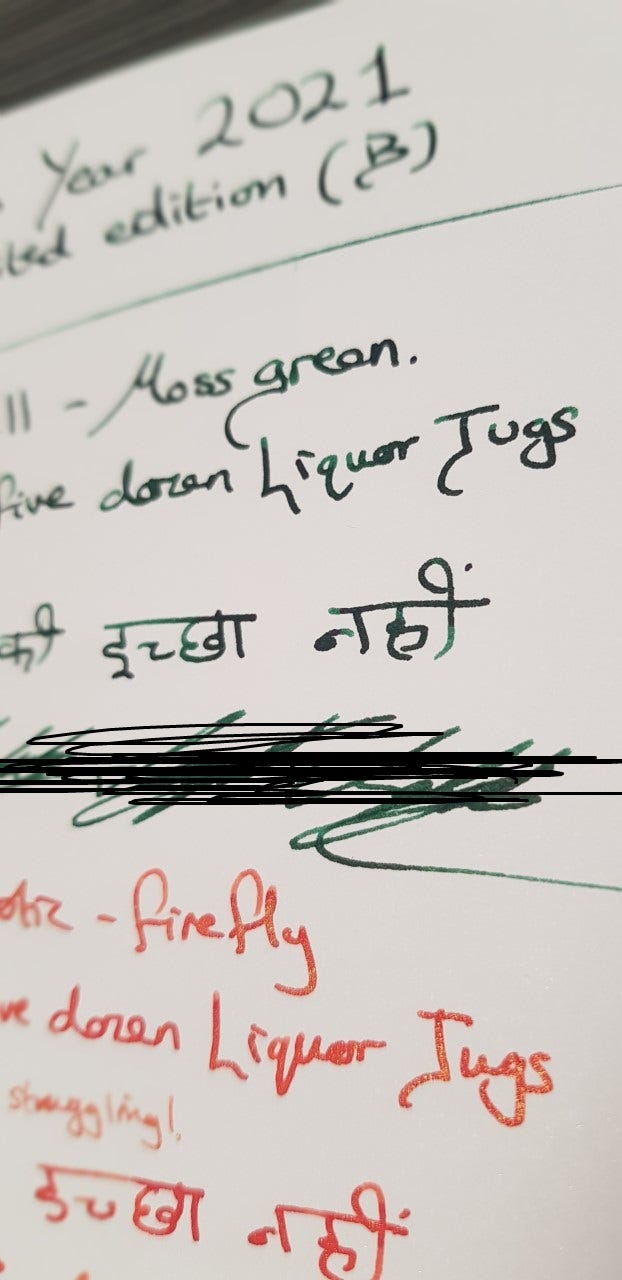 Year 2021
ted edition (B)
11 - Moss green.
five dozen Liquor Jugs
की इच्छा नहीं
- firefly
ve dozen Liquor Jugs
struggling!
इच्छा नहीं